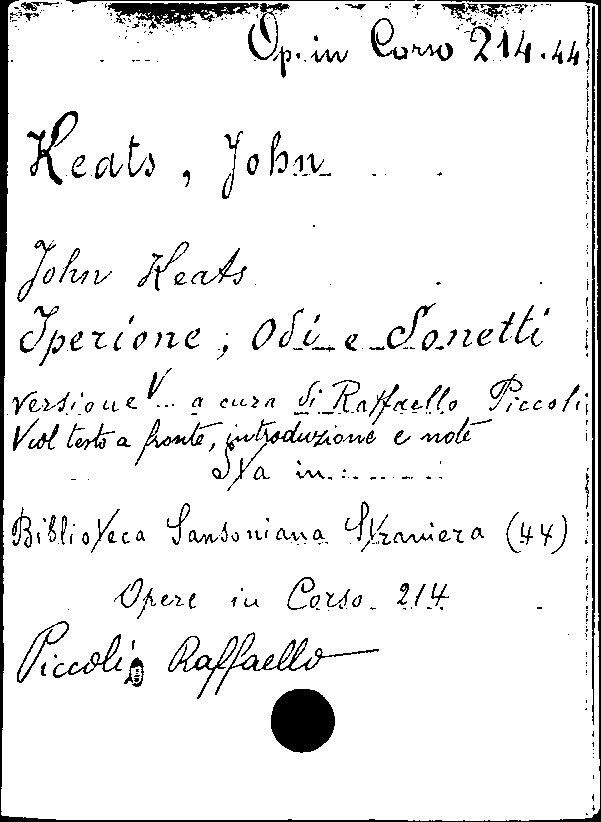 Op. in Corso 214.44
Keats, John
John Keats
Iperione, Odi e Sonetti
versione V... a cura di Raffaello Piccoli
V col testo a fronte, introduzione e note
Sta in:
Biblioteca Sansoniana Straniera (44)
Opere in Corso 214
Piccoli, Raffaello